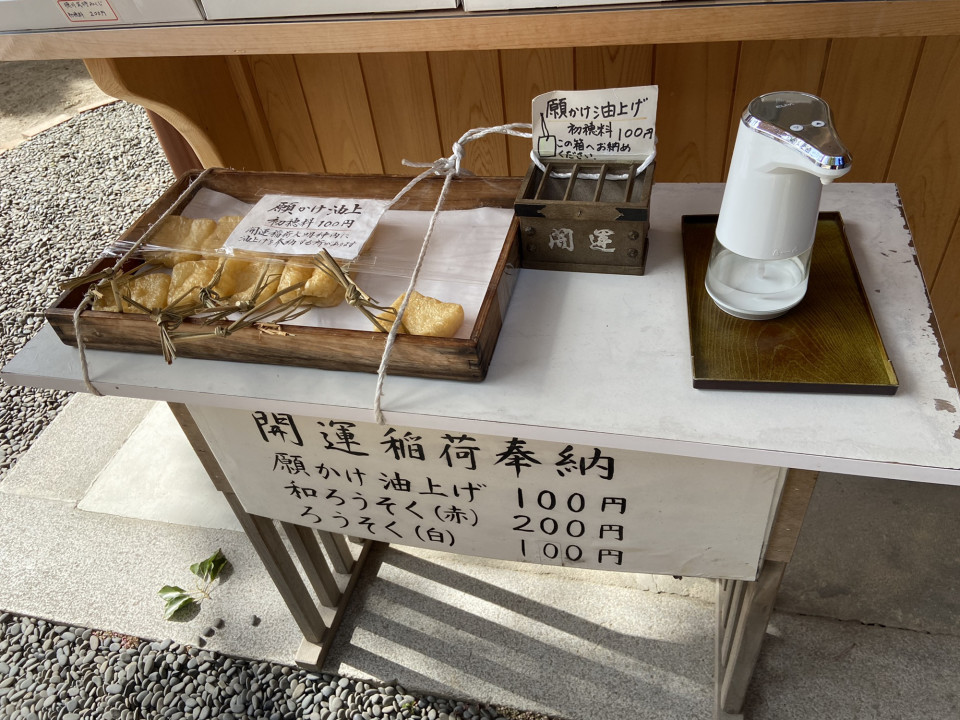 初穂料 200円
願かけ油上げ
初穂料 100円
この箱へお納め
ください。
願かけ油上
初穂料100円
開運
開運稲荷奉納
願かけ油上げ 100円
和ろうそく(赤) 200円
ろうそく(白) 100円